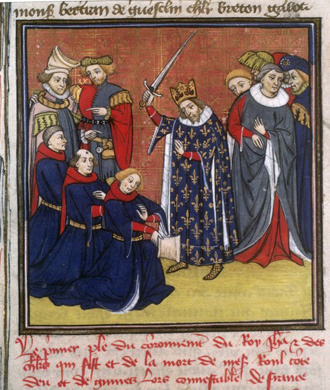 mons bertram de guesclin chlr breton
Le p̄mier ple du coronnement du Roy Jhan et des
chlrs qui fist et de la mort de mess Raoul conte
deu et de guines Lors connestable de france